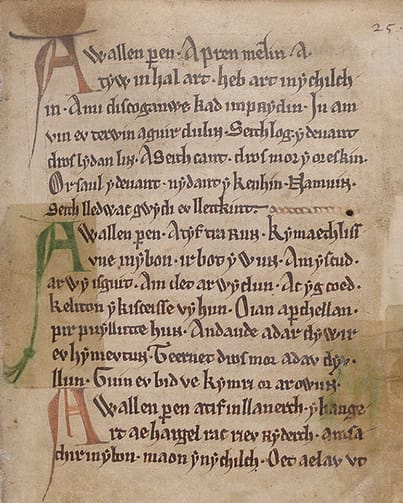 25.
Awallen peren. A pren melin. A
tyw in hal art. heb art inychilch
in. Ami discoganwe kad impRydin. In am
vin ev tervin aguir dulin. Seithlog y deuant
dros lydan lin. Aseith cant. dros mor y oreskin.
Or saul y deuant. nydant y kenhin. Namuin.
seith lledwac gwydi ev llettkint.
Awallen peren. Atif tra Run. Kymaethliss
vne inybon. ir bot y wun. Amyscud
ar wy isguit. Am clet ar wy clun. Ac yg coed
keliton y kisceisse vy hun. Oian aperchellan.
pir puyllutte hun. Andaude adar dywir
ev hymevtun. Teernet dros mor adav dyv
llun. Guin ev bid ve kymri or arowun.
Awallen peren atif inllanerch. y hange
rt ae hargel rac riev Ryderch. amsa
thir inybon. maon yny chilch. Oet aelav ut